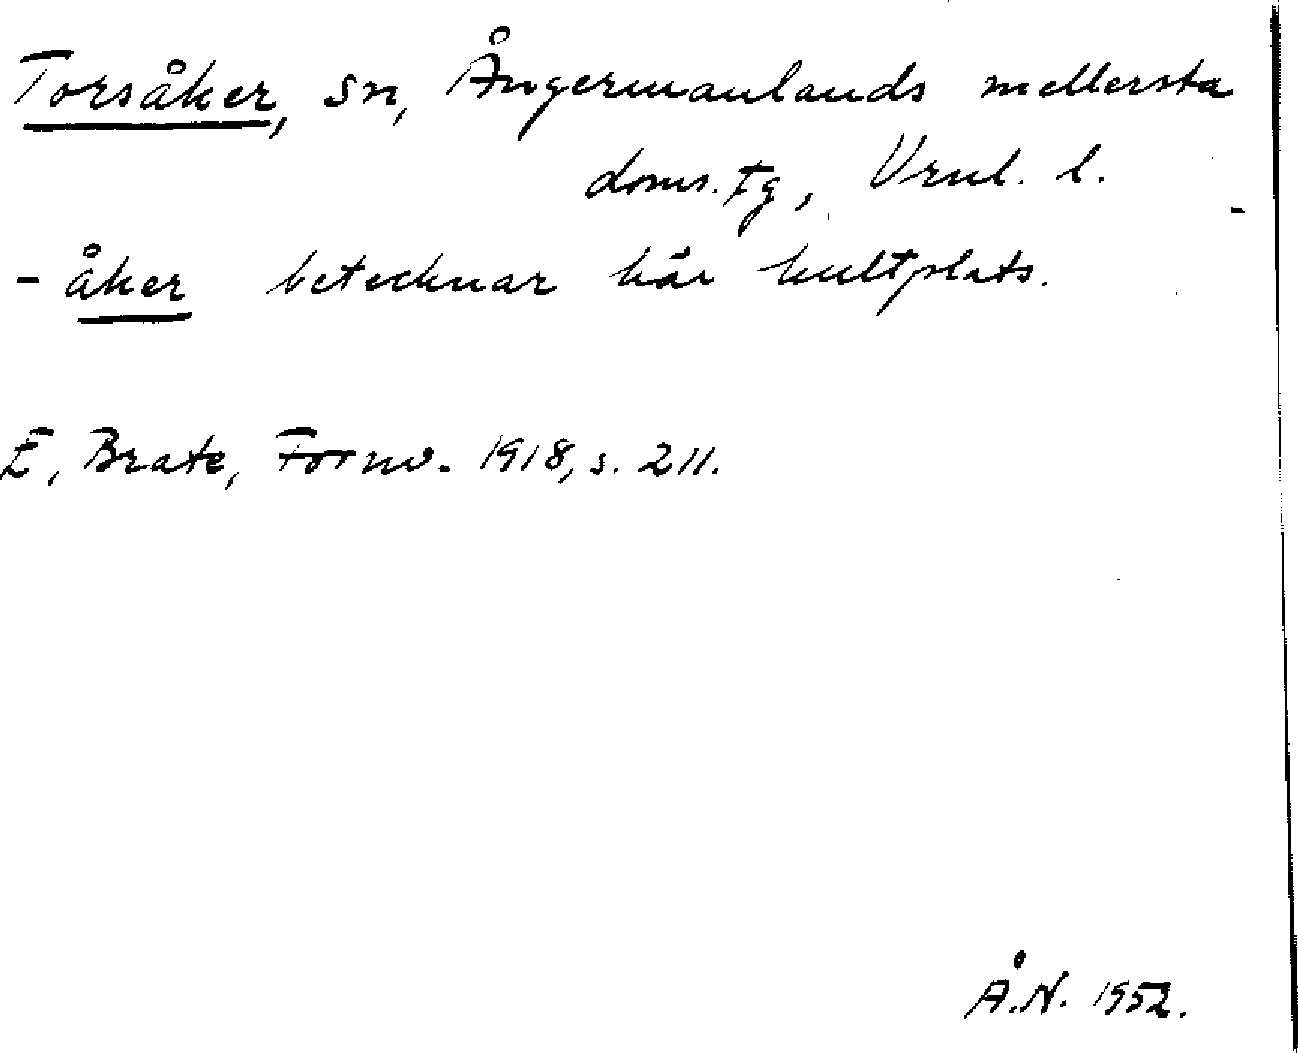 Torsåker, sn, Ångermanlands mellersta
doms.tg, Vrnl. l.
- åker betecknar här kultplats.
E. Brate, Fornv. 1918, s. 211.
Å.N. 1952.